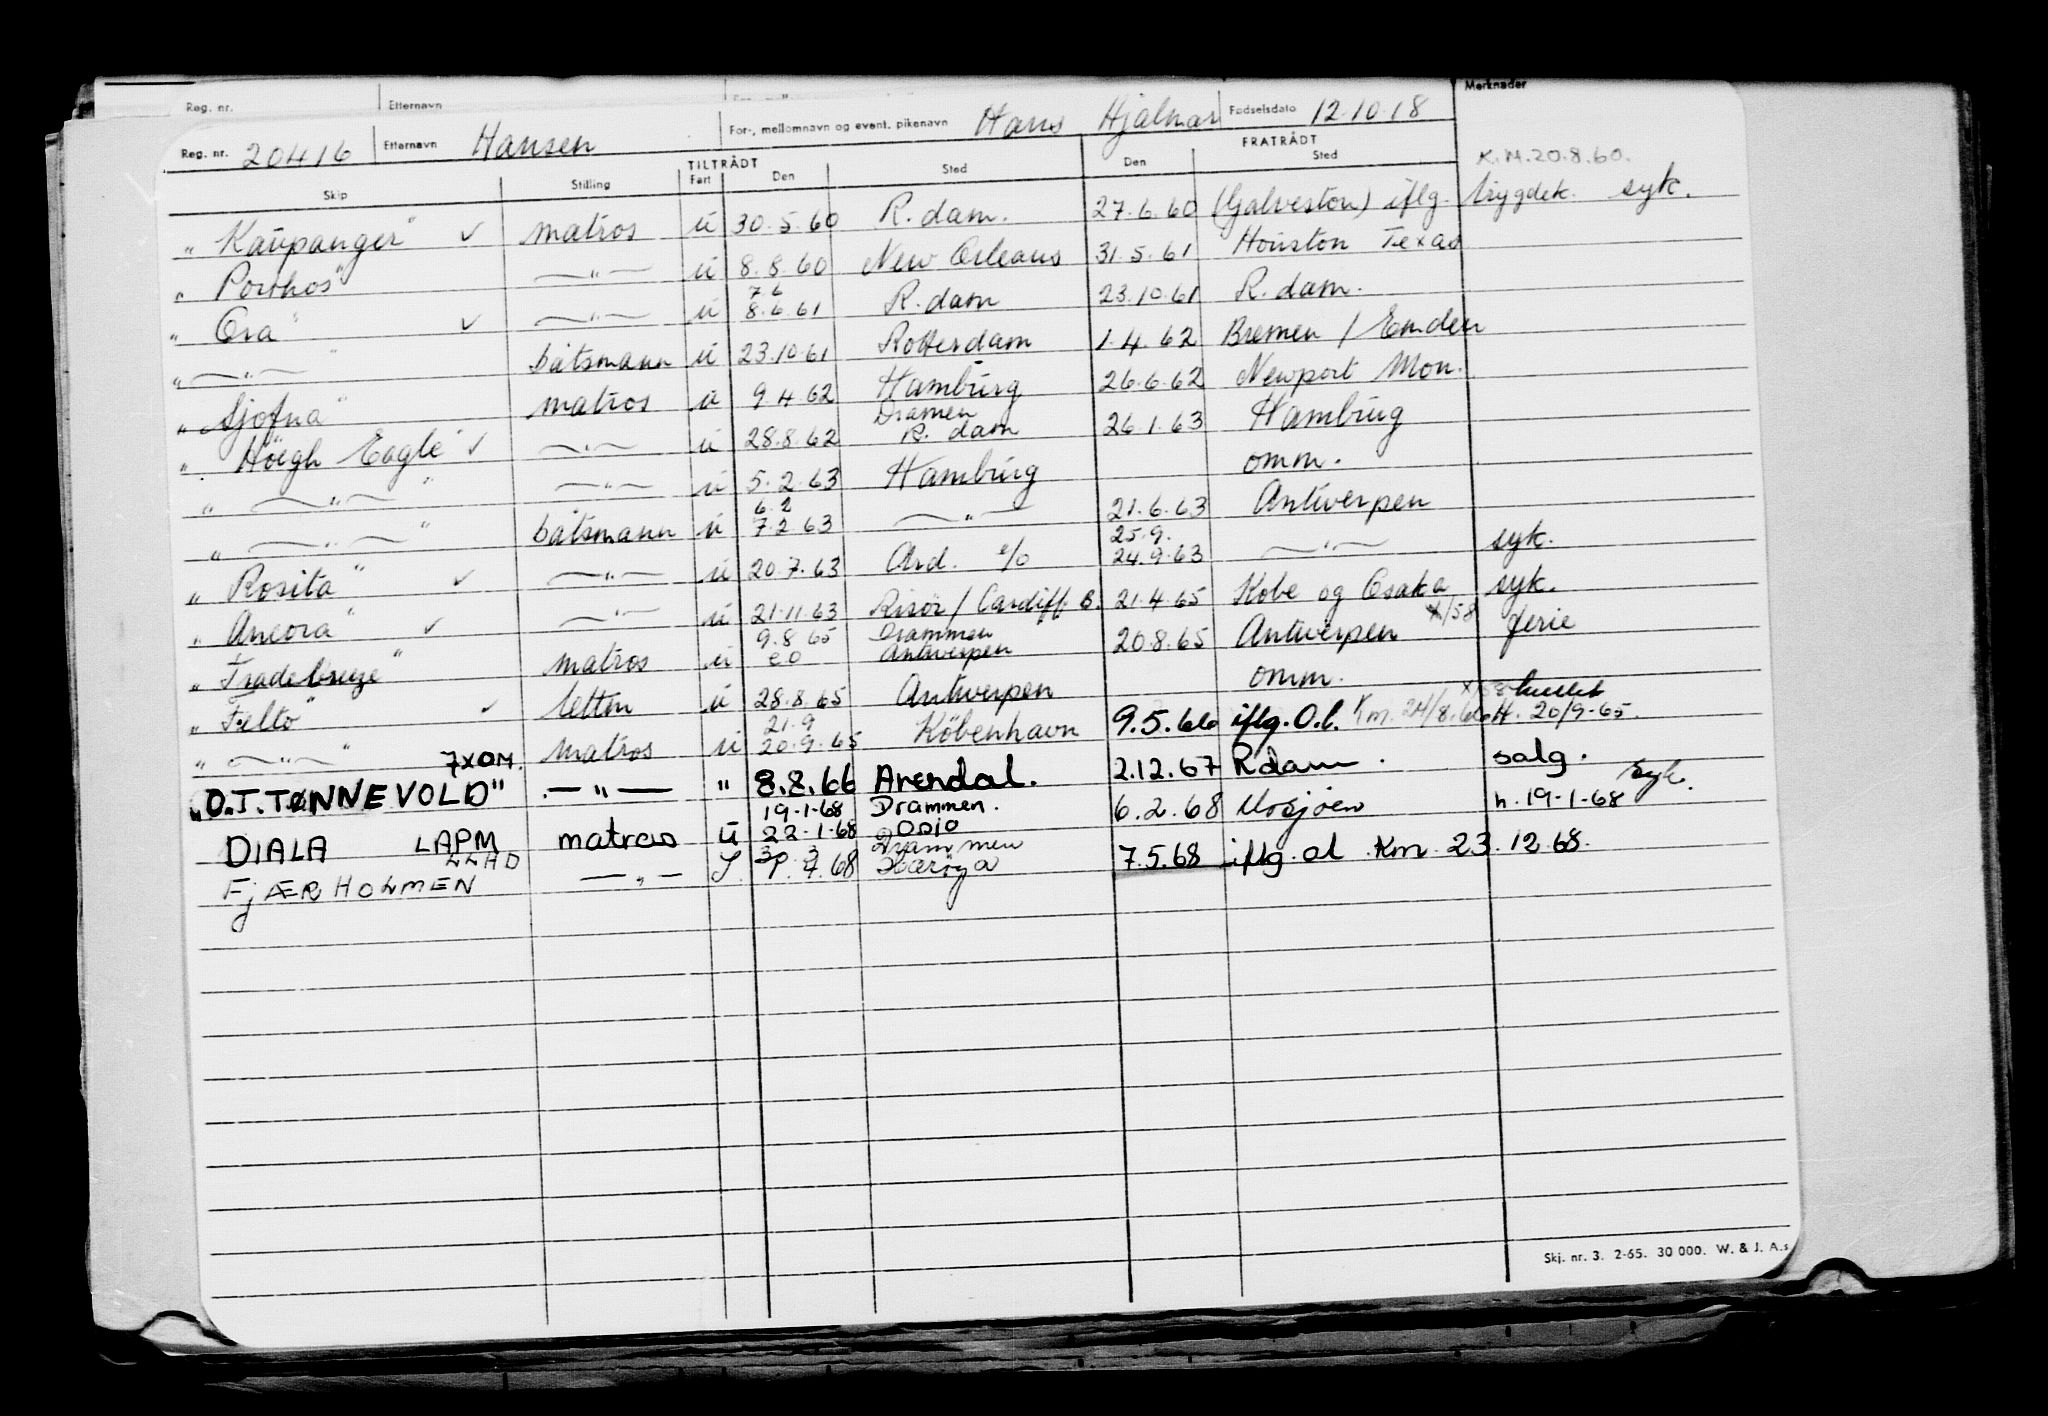 Reg. nr. Etternavn
Reg. nr. 20416 Etternavn Hansen For-, mellomnavn og event. pikenavn Hans Hjalmar Fødselsdato 12.10.18 Merknader
TILTRÅDT FRATRÅDT K.M.20.8.60.
Skip Stilling Fart Den Sted Den Sted
"Kaupanger" ✓ matros u 30.5.60 R.dam. 27.6.60 (Galveston) iflg. trygdek. syk.
"Porthos" —"— u 8.8.60 New Orleans 31.5.61 Houston Texas
7.6
"Ora" ✓ —"— u 8.6.61 R.dam 23.10.61 R.dam.
" —"— " båtsmann u 23.10.61 Rotterdam 1.4.62 Bremen / Emden
"Sjofna" matros u 9.4.62 Hamburg 26.6.62 Newport Mon.
Dramen
"Höegh Eagle" ✓ —"— u 28.8.62 R.dam 26.1.63 Hamburg
" —"— " —"— u 5.2.63 Hamburg omm.
6.2
" —"— " båtsmann u 7.2.63 —"— 21.6.63 Antwerpen
25.9.
"Rosita" ✓ —"— u 20.7.63 Ard. e/o 24.9.63 —"— syk.
"Ancora" ✓ —"— u 21.11.63 Risör / Cardiff B. 21.4.65 Kobe og Osaka syk.
9.8.65 Drammen x/58
"Tradebreeze" matros u eo Antwerpen 20.8.65 Antwerpen ferie
"Felto" ✓ lettm u 28.8.65 Antwerpen omm.
21.9
" —"— " matros u 20.9.65 København 9.5.66 iflg. O.l. Km. 24/8.66 H. 20/9-65.
7XOM.
"O.J.TØNNEVOLD" —"— " 8.8.66 Arendal. 2.12.67 Rdam. salg.
19-1-68 Drammen. syk.
DIALA LAPM matros u 22.1-68 Oslo 6.2.68 Mosjøen h. 19-1-68
LLAD 3 Drammen
FjÆRHOLMEN —"— 7.5.68 iflg. ol Km 23.12.68.
Skj. nr. 3. 2-65. 30 000. W. & J. A.s